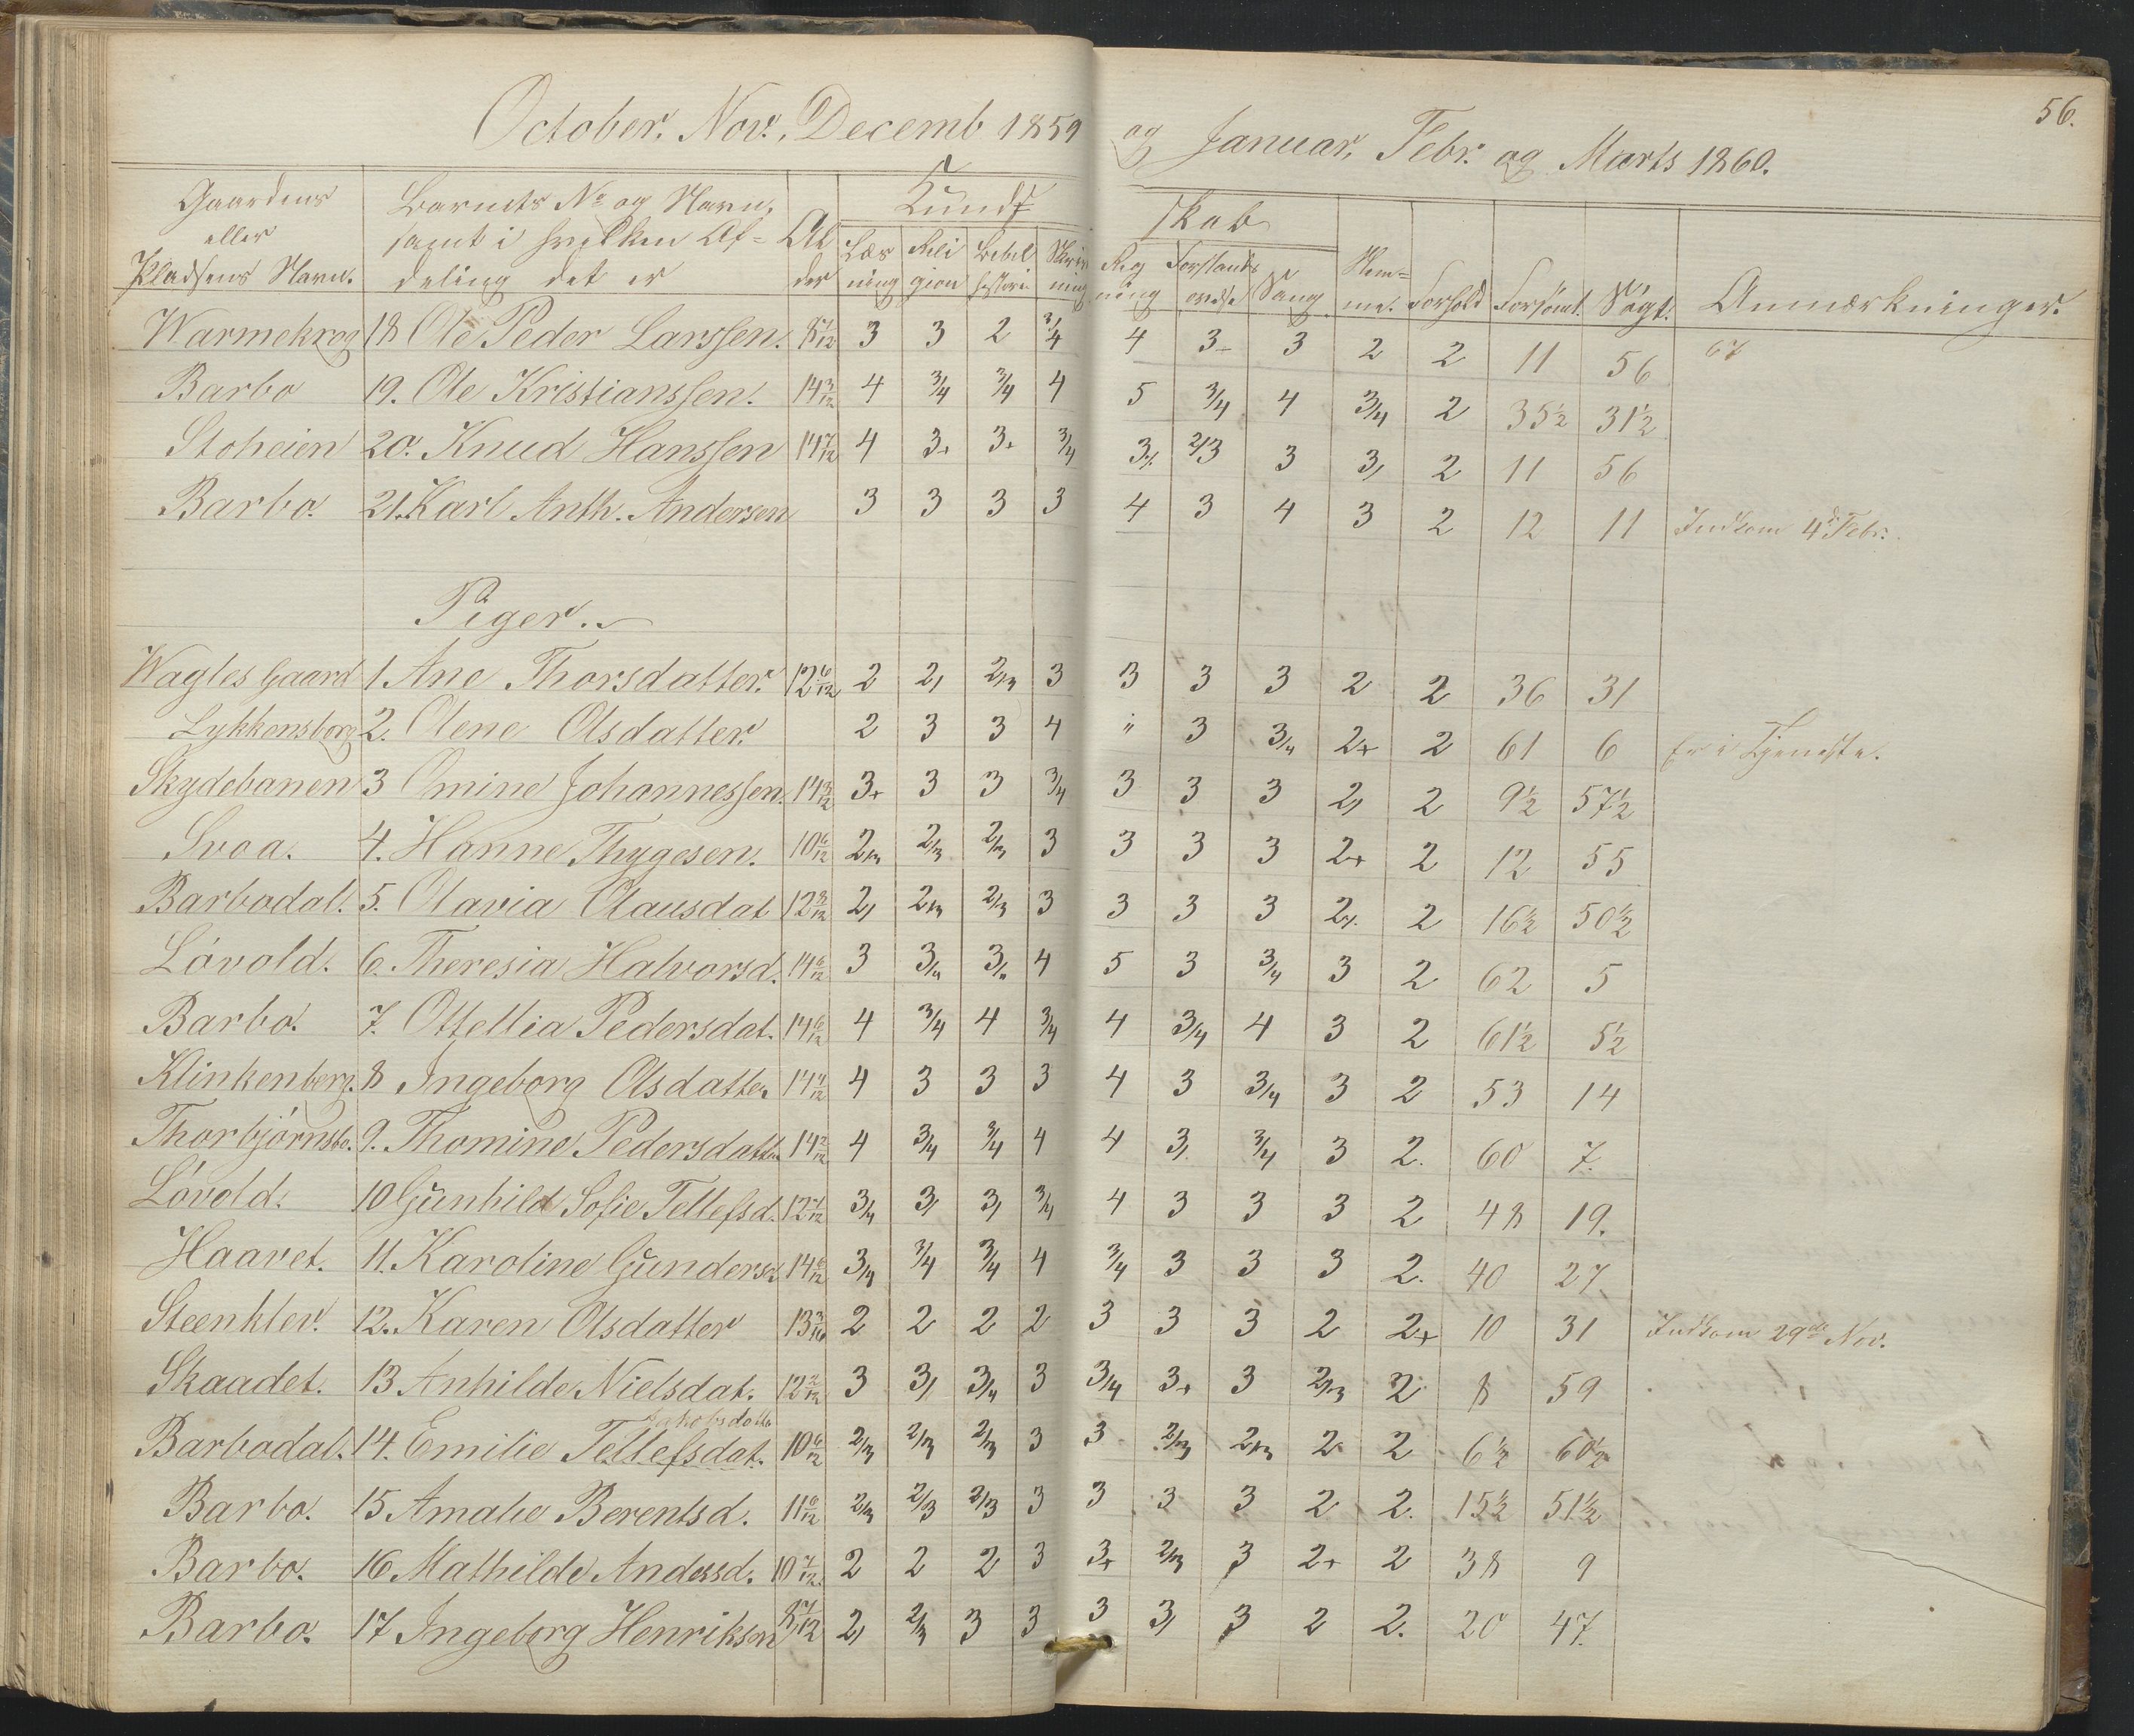 56.
October. Nov. Decemb 1859 og Januar, Febr. og Marts 1860.
Gaardens eller Pladsens Navn. | Barnets No og Navn, samt i hvilken Afdeling det er | Alder | Kundskab: Læsning | Religion | Bibelhistorie | Skrivning | Regning | Forstandsøvelse | Sang | Nemme. | Forhold | Forsømt. | Søgt. | Anmærkninger.
Warmekrog 18 Ole Peder Larssen. 8 7/12 3 3 2 3/4 4 3 3 2 2 11 56 67
Barbo 19. Ole Kristianssen. 14 3/12 4 3/4 3/4 4 5 3/4 4 3/4 2 35½ 31½
Stoheien 20. Knud Hanssen 14 7/12 4 3+ 3+ 3/4 3/. 2/3 3 3/ 2 11 56
Barbo. 21. Karl Anth. Andersen 3 3 3 3 4 3 4 3 2 12 11 Indkom 4d Febr.
Piger.
Wagles Gaard 1. Ane Thorsdatter. 12 6/12 2 2/ 2/3 3 3 3 3 2 2 36 31
Lykkensborg 2. Olene Olsdatter. 2 3 3 4 " 3 3/4 2+ 2 61 6 Er i Tjeneste.
Skydebanen 3 Omine Johannessen. 14 3/12 3+ 3 3 3/4 3 3 3 2/ 2 9½ 57½
Svoa. 4. Hanne Thygesen. 10 6/12 2/3 2/3 2/3 3 3 3 3 2+ 2 12 55
Barbodal. 5. Olavia Clausdat 12 3/12 2/ 2/3 2/3 3 3 3 3 2/. 2 16½ 50½
Lóvold. 6. Theresia Halvorsd. 14 6/12 3 3/4 3/4 4 5 3 3/4 3 2 62 5
Barbo. 7. Ottellia Pedersdat. 14 6/12 4 3/4 4 3/4 4 3/4 4 3 2 61½ 5½
Klinkenberg. 8 Ingeborg Olsdatter 14 4/12 4 3 3 3 4 3 3/4 3 2 53 14
Thorbjórnsbo. 9. Thomine Pedersdatter 14 2/12 4 3/4 3/4 4 4 3/. 3/4 3 2. 60 7.
Lóvold. 10 Gunhild Sofie Tellefsd. 12 7/12 3/4 3/ 3/ 3/4 4 3 3 3 2 48 19.
Haavet. 11. Karoline Gundersd. 14 6/12 3/4 3/4 3/4 4 3/4 3 3 3 2. 40 27.
Steenkler. 12. Karen Olsdatter 13 2 2 2 2 3 3 3 2 2+ 10 31 Indkom 29de Nov.
Skaadet. 13 Anhilde Nielsdat. 12 2/12 3 3/ 3/4 3 3/4 3+ 3 2/3 2 8 59
Jakobsdatt.
Barbodal. 14. Emilie Tellefsdat. 10 6/12 2/3 2/3 2/3 3 3 2/3 2/3 2 2 6½ 60½
Barbo. 15 Amalie Berentsd. 11 6/12 2/3 2/3 2/3 3 3 3 3 2 2. 15½ 51½
Barbo. 16 Mathilde Andersd. 10 7/12 2 2 2 3 3+ 2/3 3 2+ 2 38 9
Barbo. 17 Ingeborg Henriksen 8 7/12 2/ 2/3 3 3 3 3/ 3 2 2. 20 47.